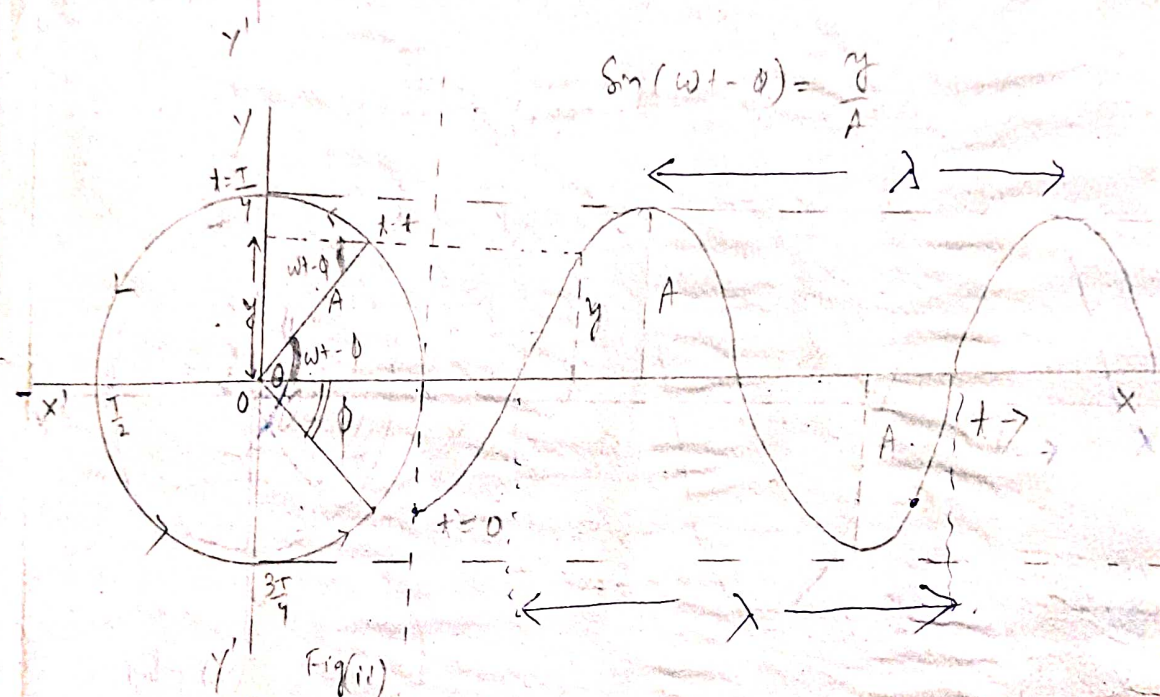 Y'
Sin(ωt-ϕ) = y/A
Y
λ
t=T/4
t=t
ωt-ϕ
A
y
A
y
ωt-ϕ
θ
X'
T/2
O
ϕ
X
t→
A
t=0
3T/4
λ
Y'
Fig(ii)